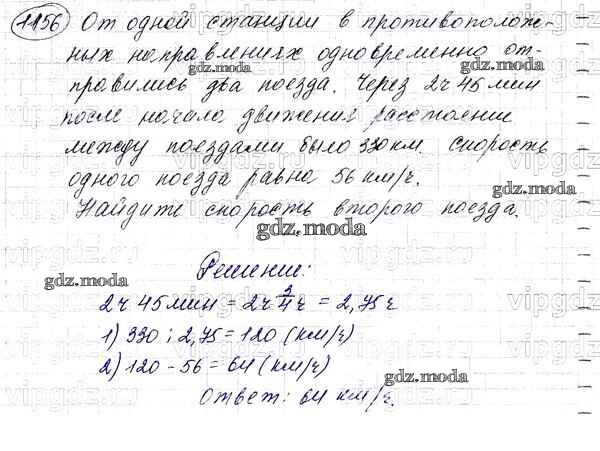 1156 От одной станции в противополож-
ных направлениях одновременно от-
правились два поезда. Через 2ч 45мин
после начала движения расстояние
между поездами было 330км. Скорость
одного поезда равна 56 км/ч.
Найдите скорость второго поезда.
Решение:
2ч 45мин = 2ч 3/4ч = 2,75ч
1) 330 : 2,75 = 120 (км/ч)
2) 120 - 56 = 64 (км/ч)
Ответ: 64 км/ч.
gdz.moda
gdz.moda
gdz.moda
gdz.moda
gdz.moda
gdz.moda